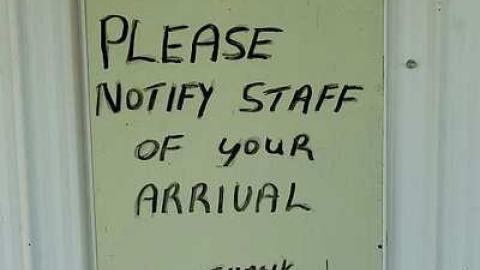 PLEASE
NOTIFY STAFF
OF YOUR
ARRIVAL